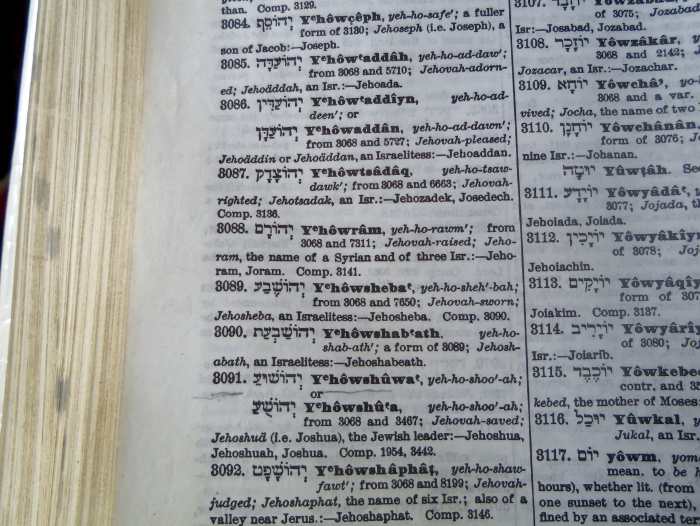 than. Comp. 3129.
3084. יְהוֹסֵף Yᵉhôwçêph, yeh-ho-safe'; a fuller
form of 3130; Jehoseph (i.e. Joseph), a
son of Jacob:—Joseph.
3085. יְהוֹעַדָּה Yᵉhôwʻaddâh, yeh-ho-ad-daw';
from 3068 and 5710; Jehovah-adorn-
ed; Jehoäddah, an Isr.:—Jehoada.
3086. יְהוֹעַדִּין Yᵉhôwʻaddîyn, yeh-ho-ad-
deen'; or
יְהוֹעַדָּן Yᵉhôwʻaddân, yeh-ho-ad-dawn';
from 3068 and 5727; Jehovah-pleased;
Jehoäddin or Jehoäddan, an Israelitess:—Jehoaddan.
3087. יְהוֹצָדָק Yᵉhôwtsâdâq, yeh-ho-tsaw-
dawk'; from 3068 and 6663; Jehovah-
righted; Jehotsadak, an Isr.:—Jehozadek, Josedech.
Comp. 3136.
3088. יְהוֹרָם Yᵉhôwrâm, yeh-ho-rawm'; from
3068 and 7311; Jehovah-raised; Jeho-
ram, the name of a Syrian and of three Isr.:—Jeho-
ram, Joram. Comp. 3141.
3089. יְהוֹשֶׁבַע Yᵉhôwshebaʻ, yeh-ho-sheh'-bah;
from 3068 and 7650; Jehovah-sworn;
Jehosheba, an Israelitess:—Jehosheba. Comp. 3090.
3090. יְהוֹשַׁבְעַת Yᵉhôwshabʻath, yeh-ho-
shab-ath'; a form of 3089; Jehosh-
abath, an Israelitess:—Jehoshabeath.
3091. יְהוֹשׁוּעַ Yᵉhôwshûwaʻ, yeh-ho-shoo'-ah;
or
יְהוֹשֻׁעַ Yᵉhôwshûʻa, yeh-ho-shoo'-ah;
from 3068 and 3467; Jehovah-saved;
Jehoshuä (i.e. Joshua), the Jewish leader:—Jehoshua,
Jehoshuah, Joshua. Comp. 1954, 3442.
3092. יְהוֹשָׁפָט Yᵉhôwshâphâṭ, yeh-ho-shaw-
fawt'; from 3068 and 8199; Jehovah-
judged; Jehoshaphat, the name of six Isr.; also of a
valley near Jerus.:—Jehoshaphat. Comp. 3146.
3107.
of 3075; Jozabad
Isr:—Josabad, Jozabad.
3108. יוֹזָכָר Yôwzâkâr,
3068 and 2142;
Jozacar, an Isr.:—Jozachar.
3109. יוֹחָא Yôwchâʼ,
3068 and a var.
vived; Jocha, the name of two
3110. יוֹחָנָן Yôwchânân,
form of 3076;
nine Isr.:—Johanan.
יוּטָה Yûwṭâh. See
3111. יוֹיָדָע Yôwyâdâʻ,
3077; Jojada,
Jehoiada, Joiada.
3112. יוֹיָכִין Yôwyâkîyn
of 3078;
Jehoiachin.
3113. יוֹיָקִים Yôwyâqîy
form of
Joiakim. Comp. 3137.
3114. יוֹיָרִיב Yôwyârîy
of 3080;
Isr.:—Joiarib.
3115. יוֹכֶבֶד Yôwkebe
contr. and
kebed, the mother of Moses:
3116. יוּכַל Yûwkal,
Jukal, an Isr.
3117. יוֹם yôwm, yome
mean. to be h
hours), whether lit. (from
one sunset to the next),
fined by an associated